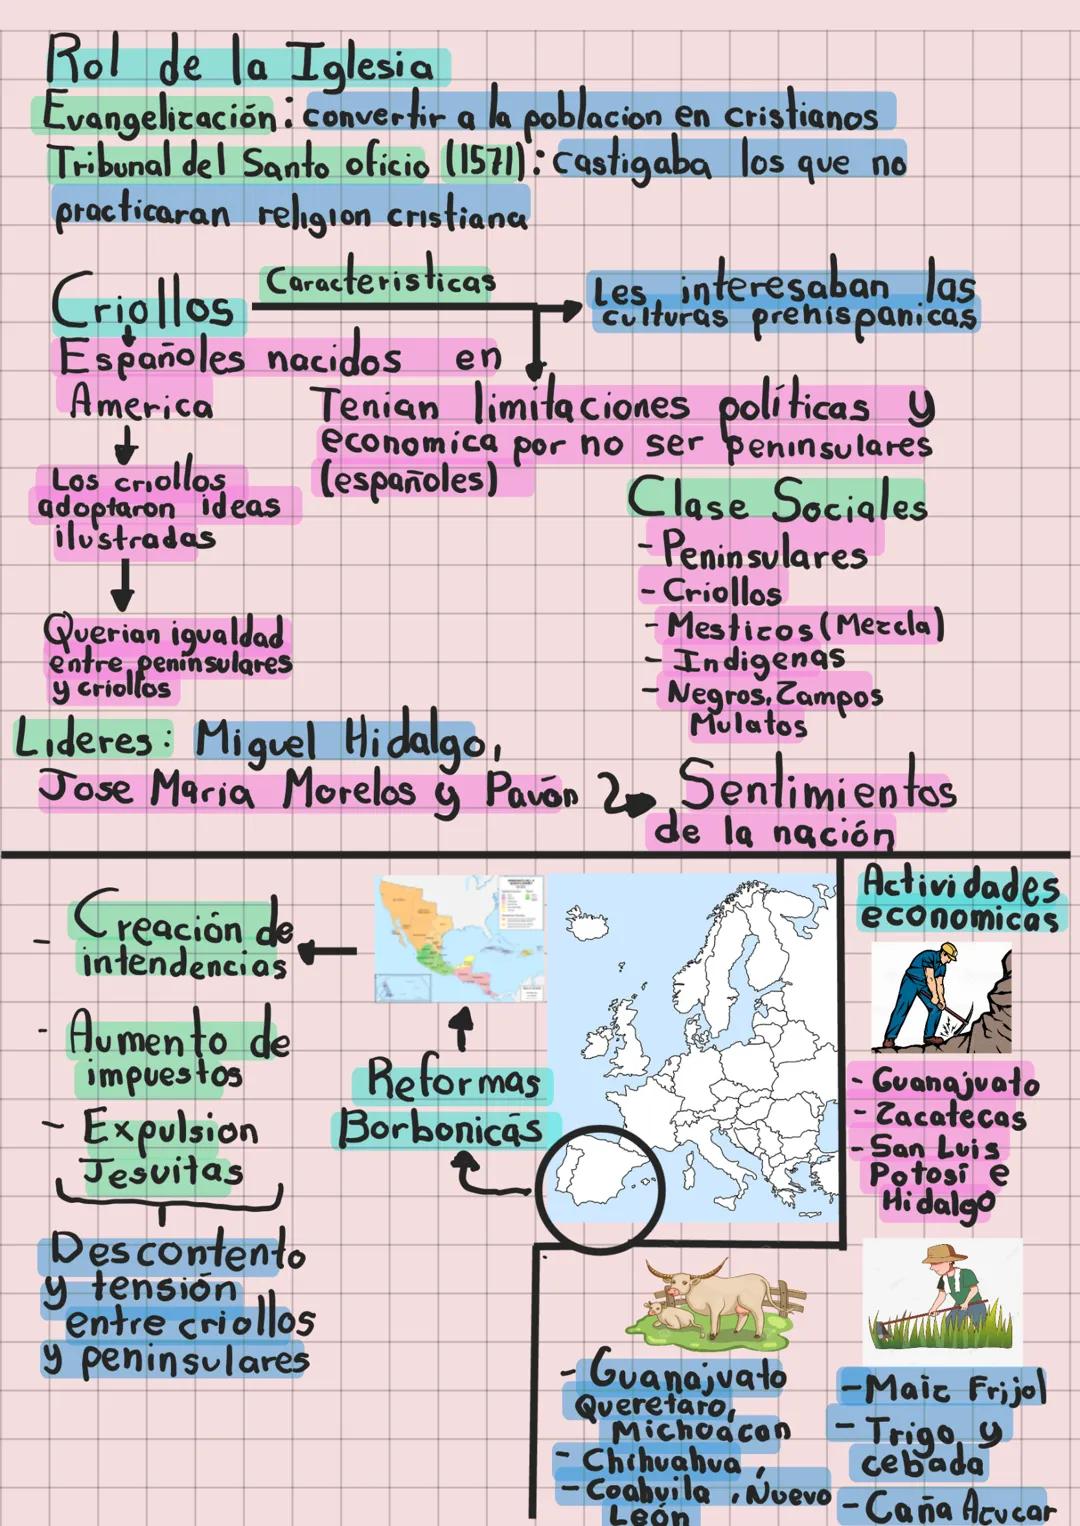 Rol de la Iglesia
Evangelización: convertir a la poblacion en cristianos
Tribunal del Santo oficio (1571): castigaba los que no
practicaran religion cristiana
Criollos
Caracteristicas
Les interesaban las
culturas prehispanicas
Españoles nacidos en
America
Tenian limitaciones políticas y
economica por no ser peninsulares
(españoles)
Los criollos
adoptaron ideas
ilustradas
Querian igualdad
entre peninsulares
y criollos
Clase Sociales
- Peninsulares
- Criollos
- Mestizos (Mezcla)
- Indigenas
- Negros, Zampos
Mulatos
Lideres: Miguel Hidalgo,
Jose Maria Morelos y Pavón
Sentimientos
de la nación
- Creación de
intendencias
- Aumento de
impuestos
- Expulsion
Jesuitas
Descontento
y tensión
entre criollos
y peninsulares
Reformas
Borbonicas
Actividades
economicas
- Guanajuato
- Zacatecas
- San Luis
Potosí e
Hidalgo
- Guanajuato
Queretaro,
Michoacan
- Chihuahua,
- Coahuila, Nuevo
León
- Maiz Frijol
- Trigo y
cebada
- Caña Azucar